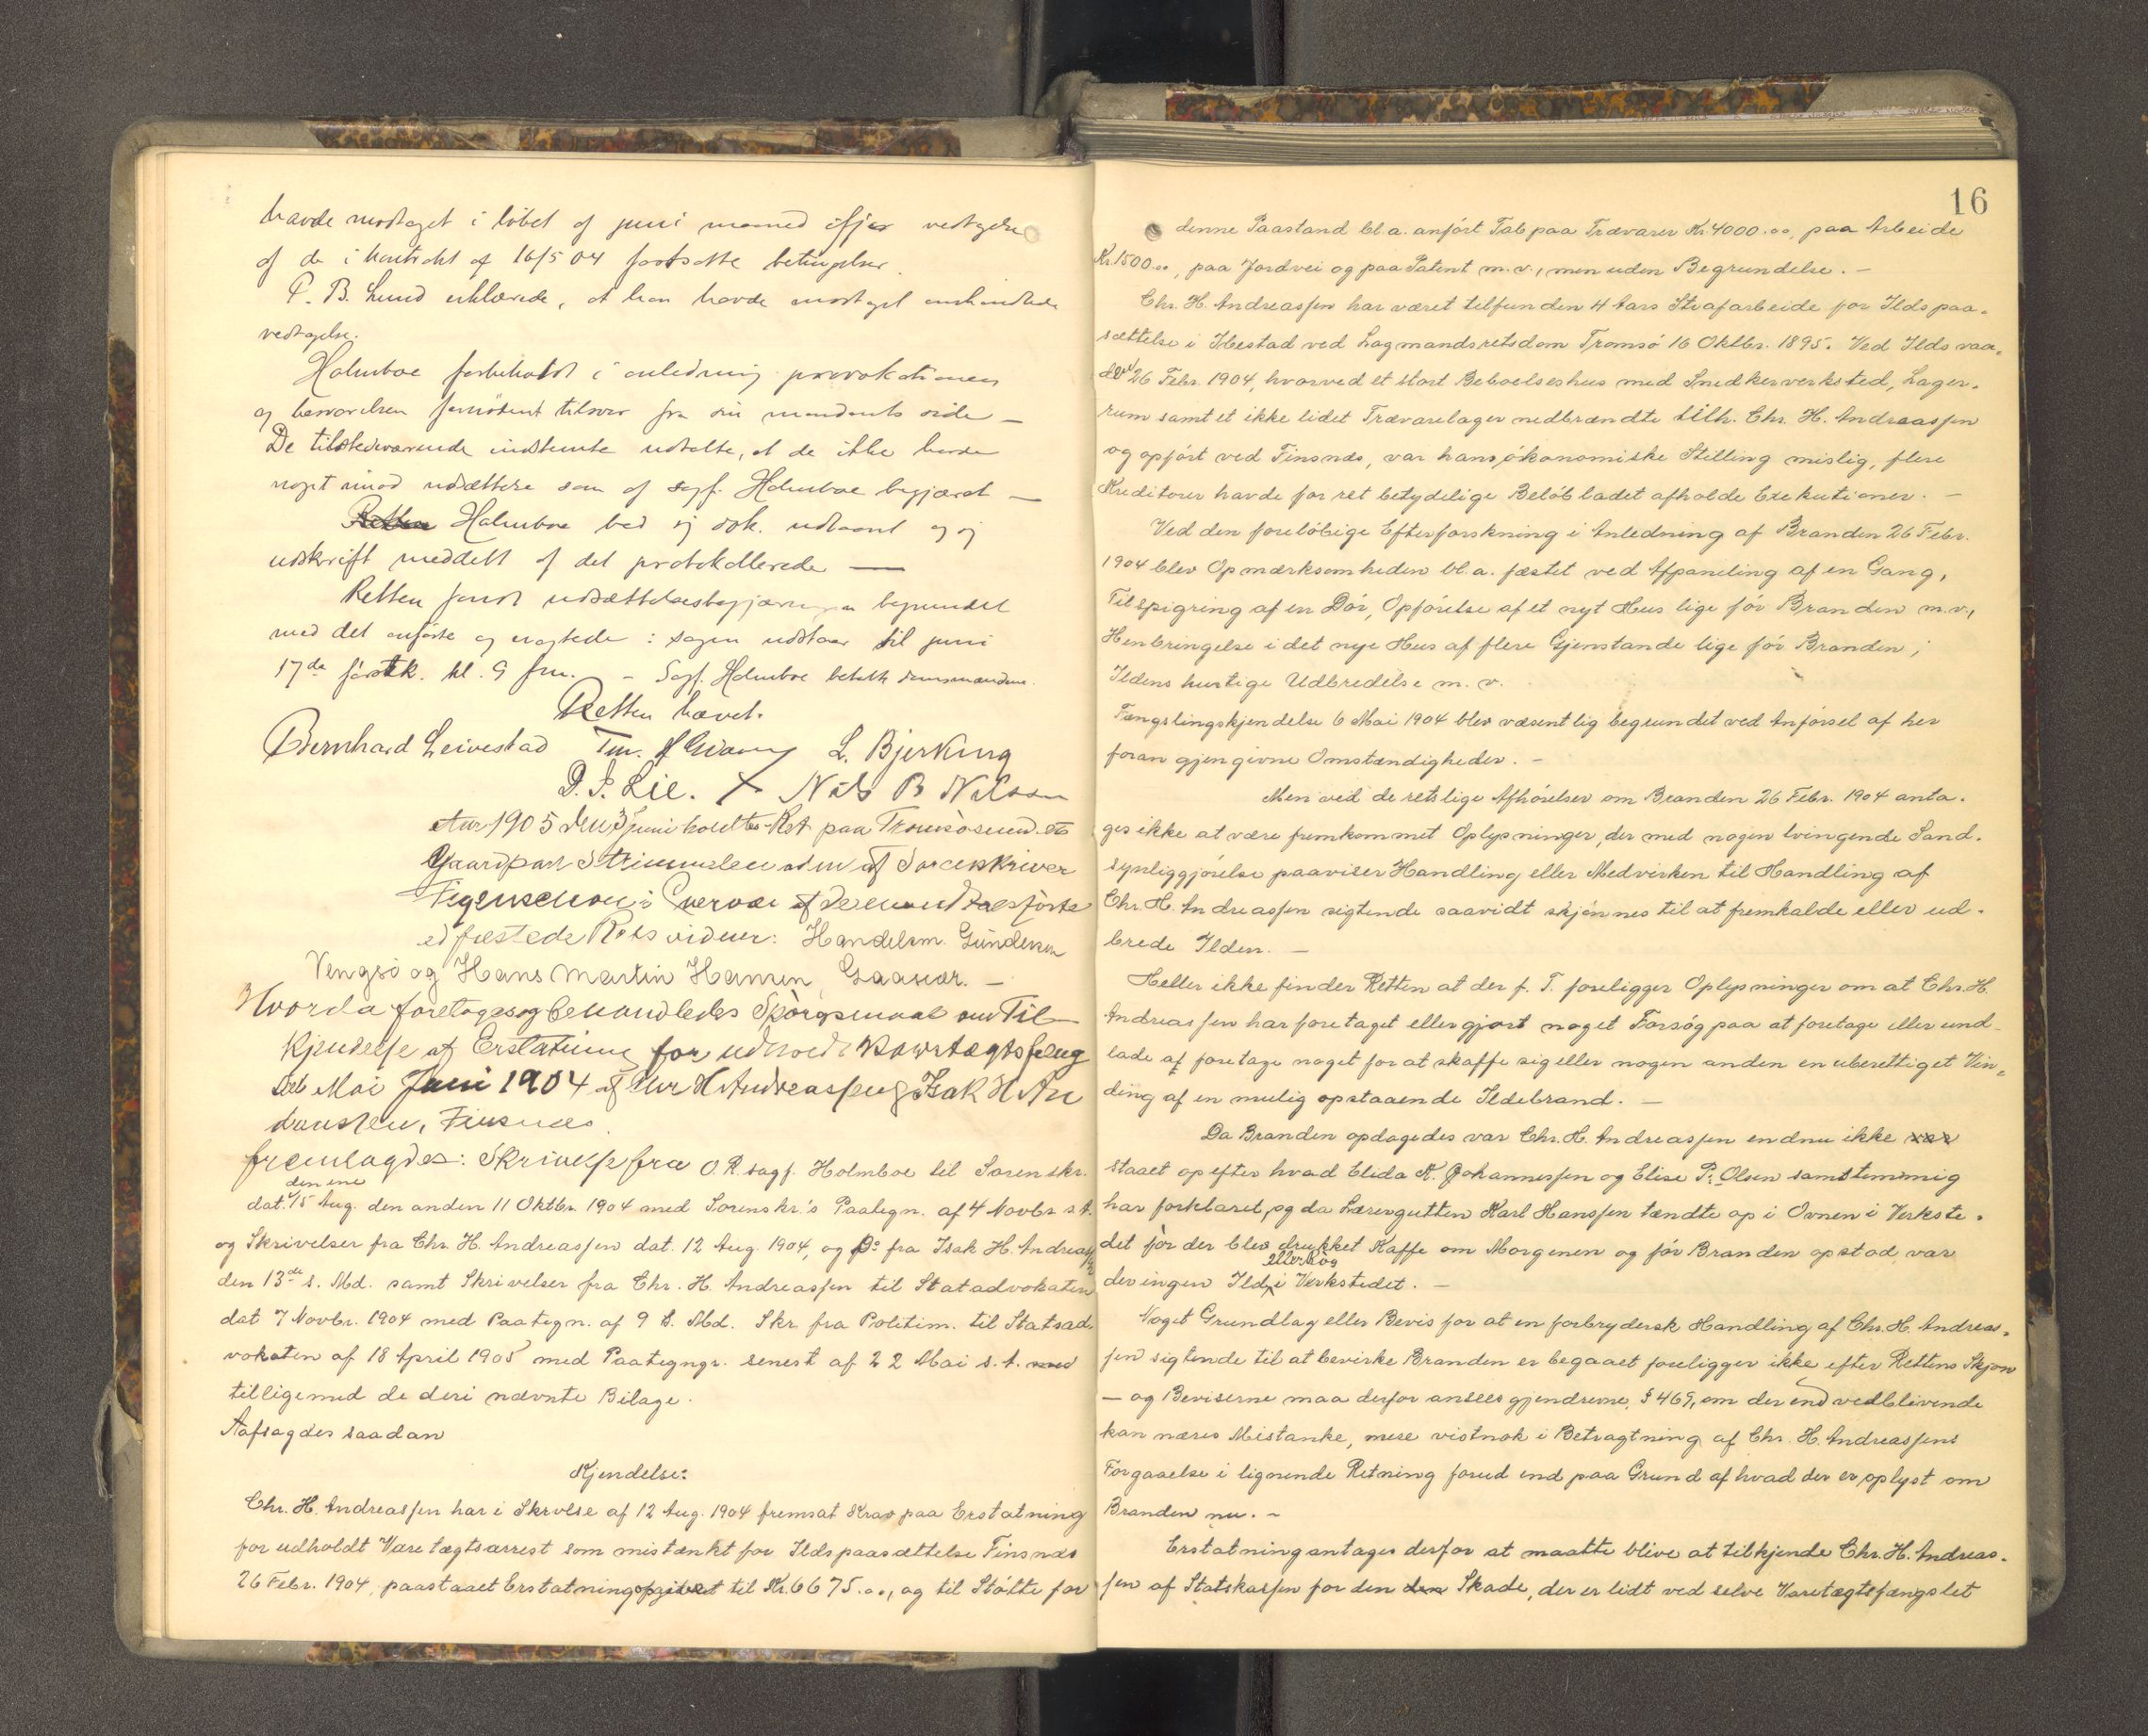 havde modtaget i løbet af juni maaned ifjor vedtagelse
af de i kontrakt af 16/5 04 fortsatte betingelser.
P. B. Lund erklærede, at han havde modtaget omhandlede
vedtagelse.
Holmboe forbeholdt i anledning provokationen
og besvarelsen fornødent tilsvar fra sin mandants side —
De tilstedeværende indstevnte udtalte, at de ikke havde
noget imod udsættelse som af sagf. Holmboe begjæret —
Retten Holmboe bad sig dok. udlaant og sig
udskrift meddelt af det protokollerede —
Retten fandt udsættelsesbegjæringen begrundet
med det anførte og eragtede: sagen udstaar til juni
17de førstk. kl. 9 fm. - Sagf. Holmboe betalte domsmændene.
Retten hævet.
Bernhard Leivestad L. Bjerkeng
D. P. Lie. Nils B Nilsen
Aar 1905 den 3 juni holdtes Ret paa Tromsøsund
Gaardpart Strimmelen af Sorenskriver
Figenschou i Overvær af
edfæstede Rets vidner: Handelsm. Gundersen
Vengsø og Hans Martin Hansen, Gaasvær. —
Hvorda foretoges og behandledes Spørgsmaal om Til-
kjendelse af Erstatning for udholdt Varetægtsfængsel
Mai Juni 1904 af Chr H Andreassen og Isak H An
dreassen, Finsnes.
fremlagdes: Skrivelse fra O.R. sagf. Holmboe til Sorenskr.
den ene
dat. 15 Aug. den anden 11 Oktbr. 1904 med Sorenskr.'s Paategn. af 4 Novbr s.A.
og Skrivelser fra Chr. H. Andreassen dat. 12 Aug. 1904, og Do fra Isak H. Andreassen
den 13de s. Md. samt Skrivelser fra Chr. H. Andreassen til Statadvokaten
dat 7 Novbr. 1904 med Paategn. af 9 s. Md. Skr. fra Politim. til Statsad-
vokaten af 18 April 1905 med Paategngr. senest af 22 Mai s.A. med
tilligemed de deri nævnte Bilage.
Aafsagdes saadan
Kjendelse:
Chr. H. Andreassen har i Skrvlse af 12 Aug. 1904 fremsat Krav paa Erstatning
for udholdt Varetægtsarrest som mistænkt for Ildspaasættelse Finsnæs
26 Febr. 1904, paastaaet Erstatning opgivet til Kr. 6675.00, og til Støtte for
16
denne Paastand bl.a. anført Tab paa Trævarer Kr 4000.00, paa Arbeide
Kr. 1500.00, paa Jordvei og paa Patent m.v., men uden Begrundelse. —
Chr. H. Andreassen har været tilfunden 4 Aars Strafarbeide for Ildspaa-
sættelse i Ibestad ved Lagmandsretsdom Tromsø 16 Oktbr. 1895. Ved Ildsvaa-
den 26 Febr. 1904, hvorved et stort Beboelseshus med Snedkerverksted, Lager-
rum samt et ikke lidet Trævarelager nedbrændte tilh. Chr. H. Andreassen
og opført ved Finsnæs, var hans økonomiske Stilling mislig, flere
Kreditorer havde for ret betydelige Beløb ladet afholde Exekutioner. —
Ved den foreløbige Efterforskning i Anledning af Branden 26 Febr.
1904 blev Opmærksomheden bl.a. fæstet ved Afpaneling af en Gang,
Tilspigring af en Dør, Opførelse af et nyt Hus lige før Branden m.v.,
Henbringelse i det nye Hus af flere Gjenstande lige før Branden;
Ildens hurtige Udbredelse m.v.
Fængslingskjendelse 6 Mai 1904 blev væsentlig begrundet ved Anførsel af her
foran gjengivne Omstændigheder. —
Men ved de retslige Afhørelser om Branden 26 Febr. 1904 anta-
ges ikke at være fremkommet Oplysninger, der med nogen tvingende Sand-
synliggjørelse paaviser Handling eller Medvirken til Handling af
Chr. H. Andreassen sigtende saavidt skjønnes til at fremkalde eller ud-
brede Ilden. —
Heller ikke finder Retten at der f. T. foreligger Oplysninger om at Chr. H.
Andreassen har foretaget eller gjort noget Forsøg paa at foretage eller und-
lade at foretage noget for at skaffe sig eller nogen anden en uberettiget Vin-
ding af en mulig opstaaende Ildebrand. —
Da Branden opdagedes var Chr. H. Andreassen endnu ikke
staaet op efter hvad Elida K. Johannessen og Elise P. Olsen samstemmig
har forklaret, og da Læregutten Karl Hanssen tændte op i Ovnen i Verkste-
det før der blev drukket Kaffe om Morgenen og før Branden opstod, var
eller Røg
der ingen Ild i Verkstedet. —
Noget Grundlag eller Bevis for at en forbrydersk Handling af Chr. H. Andreas-
sen sigtende til at bevirke Branden er begaaet foreligger ikke efter Rettens Skjøn
— og Beviserne maa derfor ansees gjendrevne, § 469, om der end vedblivende
kan næres Mistanke, mere vistnok i Betragtning af Chr. H. Andreassens
Forgaaelse i lignende Retning forud end paa Grund af hvad der er oplyst om
Branden nu. —
Erstatning antages derfor at maatte blive at tilkjende Chr. H. Andreas-
sen af Statskassen for den den Skade, der er lidt ved selve Varetægtsfængslet